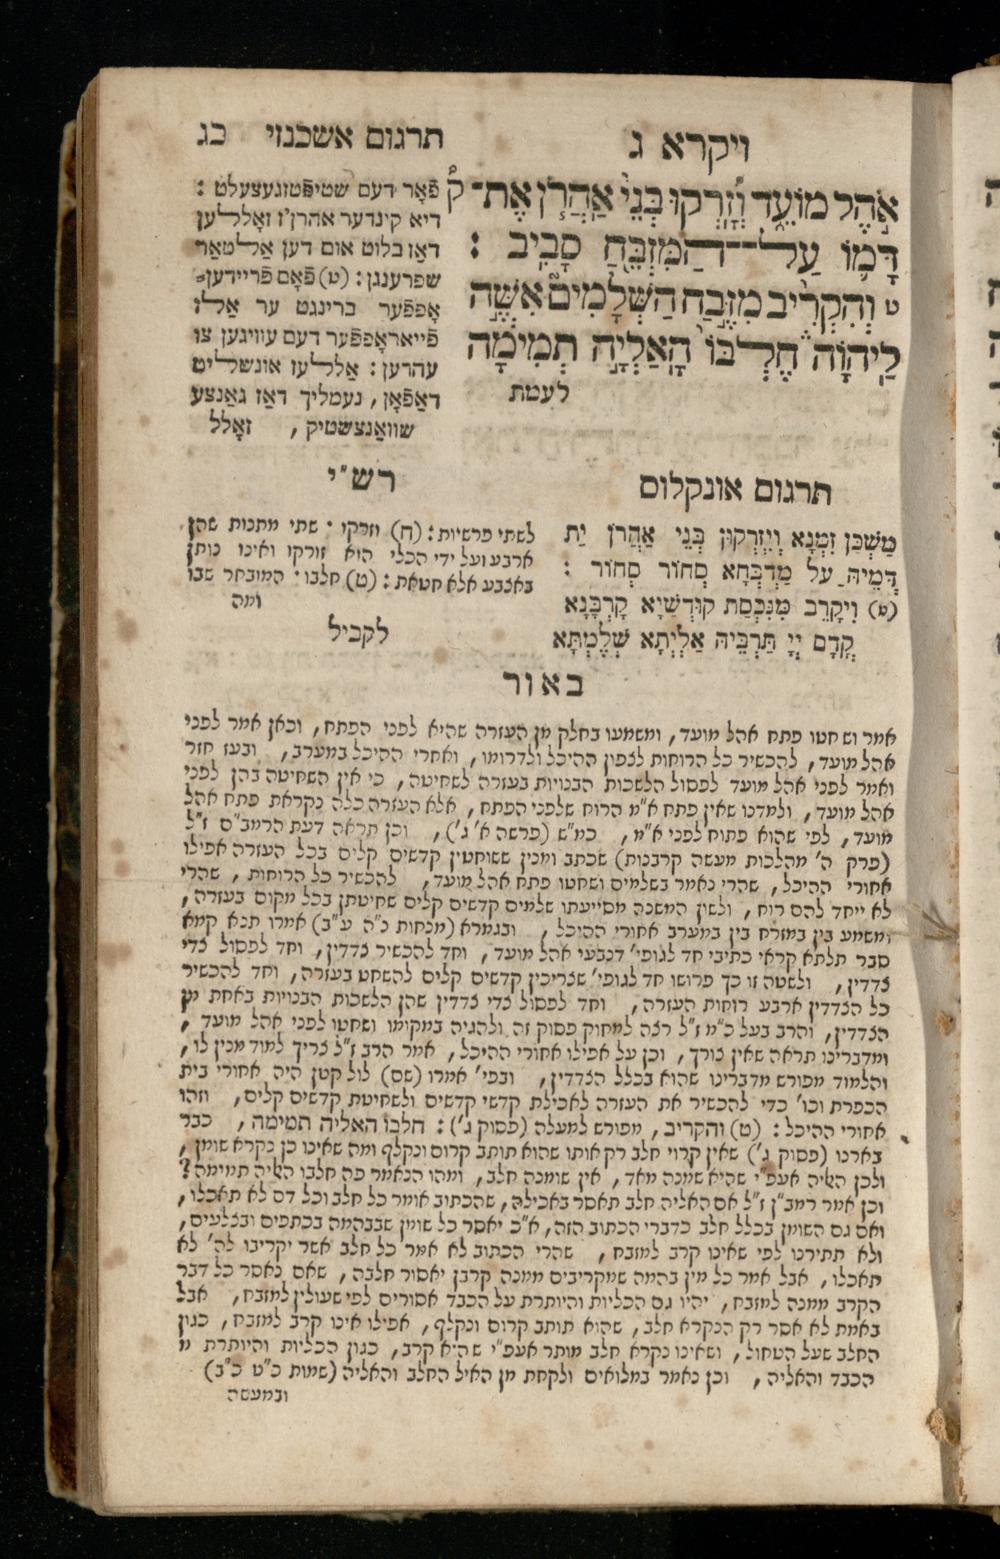 ויקרא ג
תרגום אשכנזי כג
אֹ֣הֶל מוֹעֵ֑ד וְ֠זָרְקוּ בְּנֵ֨י אַהֲרֹ֧ן אֶת־
דָּמ֛וֹ עַל־הַמִּזְבֵּ֖חַ סָבִֽיב :
ט וְהִקְרִ֨יב מִזֶּ֣בַח הַשְּׁלָמִים֮ אִשֶּׁ֣ה
לַיהוָה֒ חֶלְבּוֹ֙ הָאַלְיָ֣ה תְמִימָ֔ה
לעמת
פֿאָר דעם שטיפֿטזגעצעלט :
דיא קינדער אהרן'ז זאָללען
דאז בלוט אום דען אַלטאַר
שפרענגן : (ט) פֿאָם פֿריידען⸗
אָפפֿער ברינגט ער אַלז
פֿייאראָפפֿער דעם עוויגען צו
עהרען : אַללעז אונשליט
דאַפֿאָן, נעמליך דאז גאנצע
שוואַנצשטיק, זאָלל
תרגום אונקלוס
מַשְׁכַּן זִמְנָא וְיִזְרְקוּן בְּנֵי אַהֲרֹן יַת
דְּמֵיהּ עַל מַדְבְּחָא סְחוֹר סְחוֹר :
(ט) וִיקָרֵב מִנִּכְסַת קוּדְשַׁיָּא קָרְבָּנָא
קֳדָם יְיָ תַּרְבֵּיהּ אַלְיְתָא שְׁלֶמְתָּא
לקביל
רש"י
לשתי פרשיות : (ח) וזרקו · שתי מתנות שהן
ארבע ועל ידי הכלי הוא זורקו ואינו נותן
באצבע אלא חטאת : (ט) חלבו · המובחר שבו
ומה
באור
אמר ושחטו פתח אהל מועד, ומשמעו בחלק מן העזרה שהיא לפני הפתח, וכאן אמר לפני
אהל מועד, להכשיר כל הרוחות לצפון ההיכל ולדרומו, ואחרי ההיכל במערב, ובעז חזר
ואמר לפני אהל מועד לפסול הלשכות הבנויות בעזרה לשחיטה, כי אין השחיטה בהן לפני
אהל מועד, ולמדנו שאין פתח א"מ הרוח שלפני הפתח, אלא העזרה כלה נקראת פתח אהל
מועד, לפי שהוא פתוח לפני א"מ, כמ"ש (פרשה א' ג'), וכן תראה דעת הרמב"ם ז"ל
(פרק ה' מהלכות מעשה קרבנות) שכתב ומנין ששוחטין קדשים קלים בכל העזרה אפילו
אחורי ההיכל, שהרי נאמר בשלמים ושחטו פתח אהל מועד, להכשיר כל הרוחות, שהרי
לא ייחד להם רוח, ולשון המשנה מסייעתו שלמים קדשים קלים שחיטתן בכל מקום בעזרה,
ומשמע בין במזרח בין במערב אחורי ההיכל, ובגמרא (מנחות כ"ה ע"ב) אמרו תנא קמא
סבר תלתא קראי כתיבי חד לגופי' דנבעי אהל מועד, וחד להכשיר צדדין, וחד לפסול צדי
צדדין, ולשטה זו כך פרושו חד לגופי' שצריכין קדשים קלים להשחט בעזרה, וחד להכשיר
כל הצדדין ארבע רוחות העזרה, וחד לפסול צדי צדדין שהן הלשכות הבנויות באחת מן
הצדדין, והרב בעל כ"מ ז"ל רצה למחוק פסוק זה ולהגיה במקומו ושחטו לפני אהל מועד,
ומדברינו תראה שאין צורך, וכן על אפילו אחורי ההיכל, אמר הרב ז"ל צריך למוד מנין לו,
והלמוד מפורש מדברינו שהוא בכלל הצדדין, ובפי' אמרו (שם) לול קטן היה אחורי בית
הכפרת וכו' כדי להכשיר את העזרה לאכילת קדשי קדשים ולשחיטת קדשים קלים, וזהו
אחורי ההיכל : (ט) והקריב, מפורש למעלה (פסוק ג') : חלבו האליה תמימה, כבר
בארנו (פסוק ג') שאין קרוי חלב רק אותו שהוא תותב קרום ונקלף ומה שאינו כן נקרא שומן,
ולכן האליה אעפ"י שהיא שמנה מאד, אין שומנה חלב, ומהו הנאמר פה חלבו האליה תמימה?
וכן אמר רמב"ן ז"ל אם האליה חלב תאסר באכילה, שהכתוב אומר כל חלב וכל דם לא תאכלו,
ואם גם השומן בכלל חלב כדברי הכתוב הזה, א"כ יאסר כל שומן שבבהמה בכתפים ובצלעים,
ולא תתירנו לפי שאינו קרב למזבח, שהרי הכתוב לא אמר כל חלב אשר יקריבו לה' לא
תאכלו, אבל אמר כל מין בהמה שמקריבים ממנה קרבן יאסור חלבה, שאם נאסר כל דבר
הקרב ממנה למזבח, יהיו גם הכליות והיותרת על הכבד אסורים לפי שעולין למזבח, אבל
באמת לא אסר רק הנקרא חלב, שהוא תותב קרום ונקלף, אפילו אינו קרב למזבח, כגון
החלב שעל הטחול, ושאינו נקרא חלב מותר אעפ"י שהיא קרב, כגון הכליות והיותרת מ
הכבד והאליה, וכן נאמר במלואים ולקחת מן האיל החלב והאליה (שמות כ"ט כ"ב)
ובמעשה